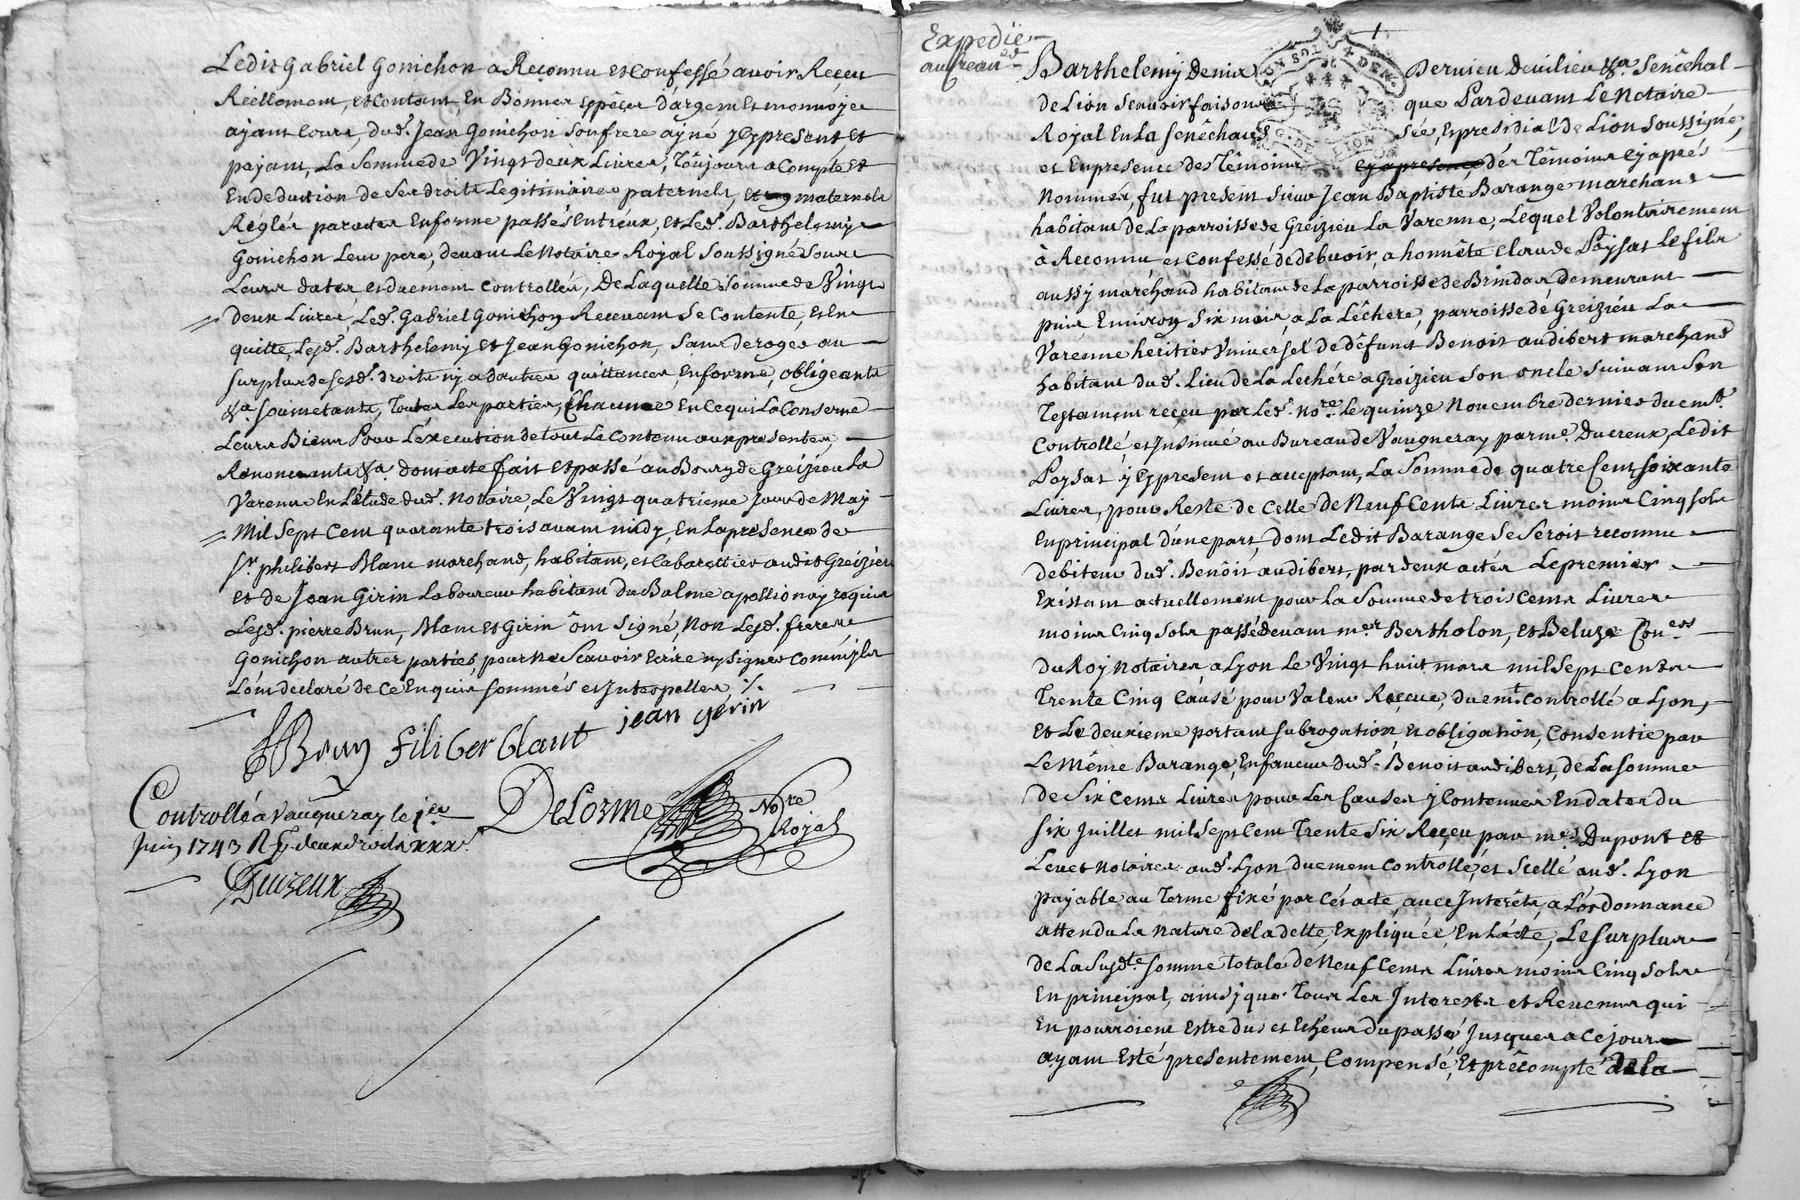 Ledit Gabriel Gonichon a Reconnu et Confessé avoir Receu
Réellement, et Contant, En Bonnes Espèces d'argent et monnoye
ayant Cours, dud. Jean Gonichon son frere ayné y Present, et
payant, La Somme de Vingt deux Livres, Toujours a Compte et
En deduction de Ses droits Legitimaires paternels, et maternels
Réglés par actes En forme passés Entreux, et Led. Barthelemy
Gonichon Leur pere, devant Le Notaire Royal Soussigné Sous
Leurs dates et duement Controllés, De Laquelle Somme de Vingt
deux Livres, Led. Gabriel Gonichon Recevant Se Contente, et En
quitte, Lesd. Barthelemy et Jean Gonichon, Sans deroger au
surplus de sesd. droits ny a d'autres quittances, En forme, obligeants
&a. soumetants, Toutes Les parties, Chacune En Ce qui La Conserne
Leurs Biens Pour L'éxecution de tout Le Contenu aux presentes,
Renoncants &a. dont acte fait et passé au Bourg de Greizieu La
Varenne En L'étude dud. Notaire, Le Vingt quatrieme Jour de May
Mil Sept Cent quarante trois avant midy, En La presence de
Sr. philibert Blanc marchand, habitant, et Cabarettier audit Greizieu
et de Jean Girin Laboureur habitant du Balme apollionay requis
Lesd. pierre Brun, Blanc et Girin ont Signé, Non Lesd. freres
Gonichon autres parties, pour ne Scavoir Ecrire ny Signer Comm'jls
L'ont declaré de Ce Enquis sommés et Interpellés ./.
Brun filiber blanc jean gérin
Controllé a Vaugneray le 1er
Juin 1743 R
DeLorme Nore
Royal
Expedié
Barthelemy Denis Dervieu Devilieu &a. Senéchal
de Lion Scavoir faisons que Pardevant Le Notaire
Royal En La Senéchaussée, Et presidial de Lion Soussigné,
et En presence des Témoins cy apres des Témoins cy aprés
Nommés, fut present Sieur Jean Baptiste Barange marchand
habitant de La parroisse de Greizieu La Varenne, Lequel Volontairement
à Reconnu et Confessé de debvoir, a honnête Claude Paysat Le fils
aussy marchand habitant de La parroisse de Brindas demeurant
puis Environ Six mois, a La Léchere, parroisse de Greizieu La
Varenne héritier Universel de défunt Benoit audibert marchand
habitant dud. Lieu de La Lechére a Greizieu Son oncle Suivant Son
Testament reçeu par Led. Nore. Le quinze Novembre dernier duemt.
Controllé, et Insinué au Bureau de Vaugneray par me. Ducreux, Ledit
Paysat y Present et acceptant, La Somme de quatre Cent Soixante
Livres, pour Reste de Celle de Neuf Cents Livres moins Cinq sols
En principal d'une part, dont Ledit Barange Se Seroit reconnu
debiteur dud. Benôit audibert, par deux actés Le premier
Existant actuellement pour La Somme de trois Cents Livres
moins Cinq Sols passé devant mes. Bertholon, et Beluze Coners
du Roy Notaires a Lyon Le Vingt huit mars mil Sept Cents
Trente Cinq Causé pour Valeur Receue, duemt. Controllé a Lyon,
Et Le deuxieme portant subrogation, et obligation, Consentie par
Le Méme Barange, En faveur dud. Benoit audibert, de La Somme
de Six Cents Livres pour Les Causes y Contenues En date du
Six Juillet mil Sept Cent Trente Six Reçeu par mes. Dupont et
Levet Notaires aud. Lyon duement Controllé, et Scellé aud. Lyon
payable au Terme fixé par Cét acte, avec Interéts, a L'ordonnance
attendu La Nature de la dette, Expliquée, En L'acte, Le Surplus
de La Susdte. Somme totale de Neuf Cents Livres moins Cinq Sols
En principal, ainsy que Tous Les Interests et Revenus qui
En pourroient Estre dus et Echeus du passé Jusques a Ce jour
ayant Esté presentement, Compensé, Et précompté de la